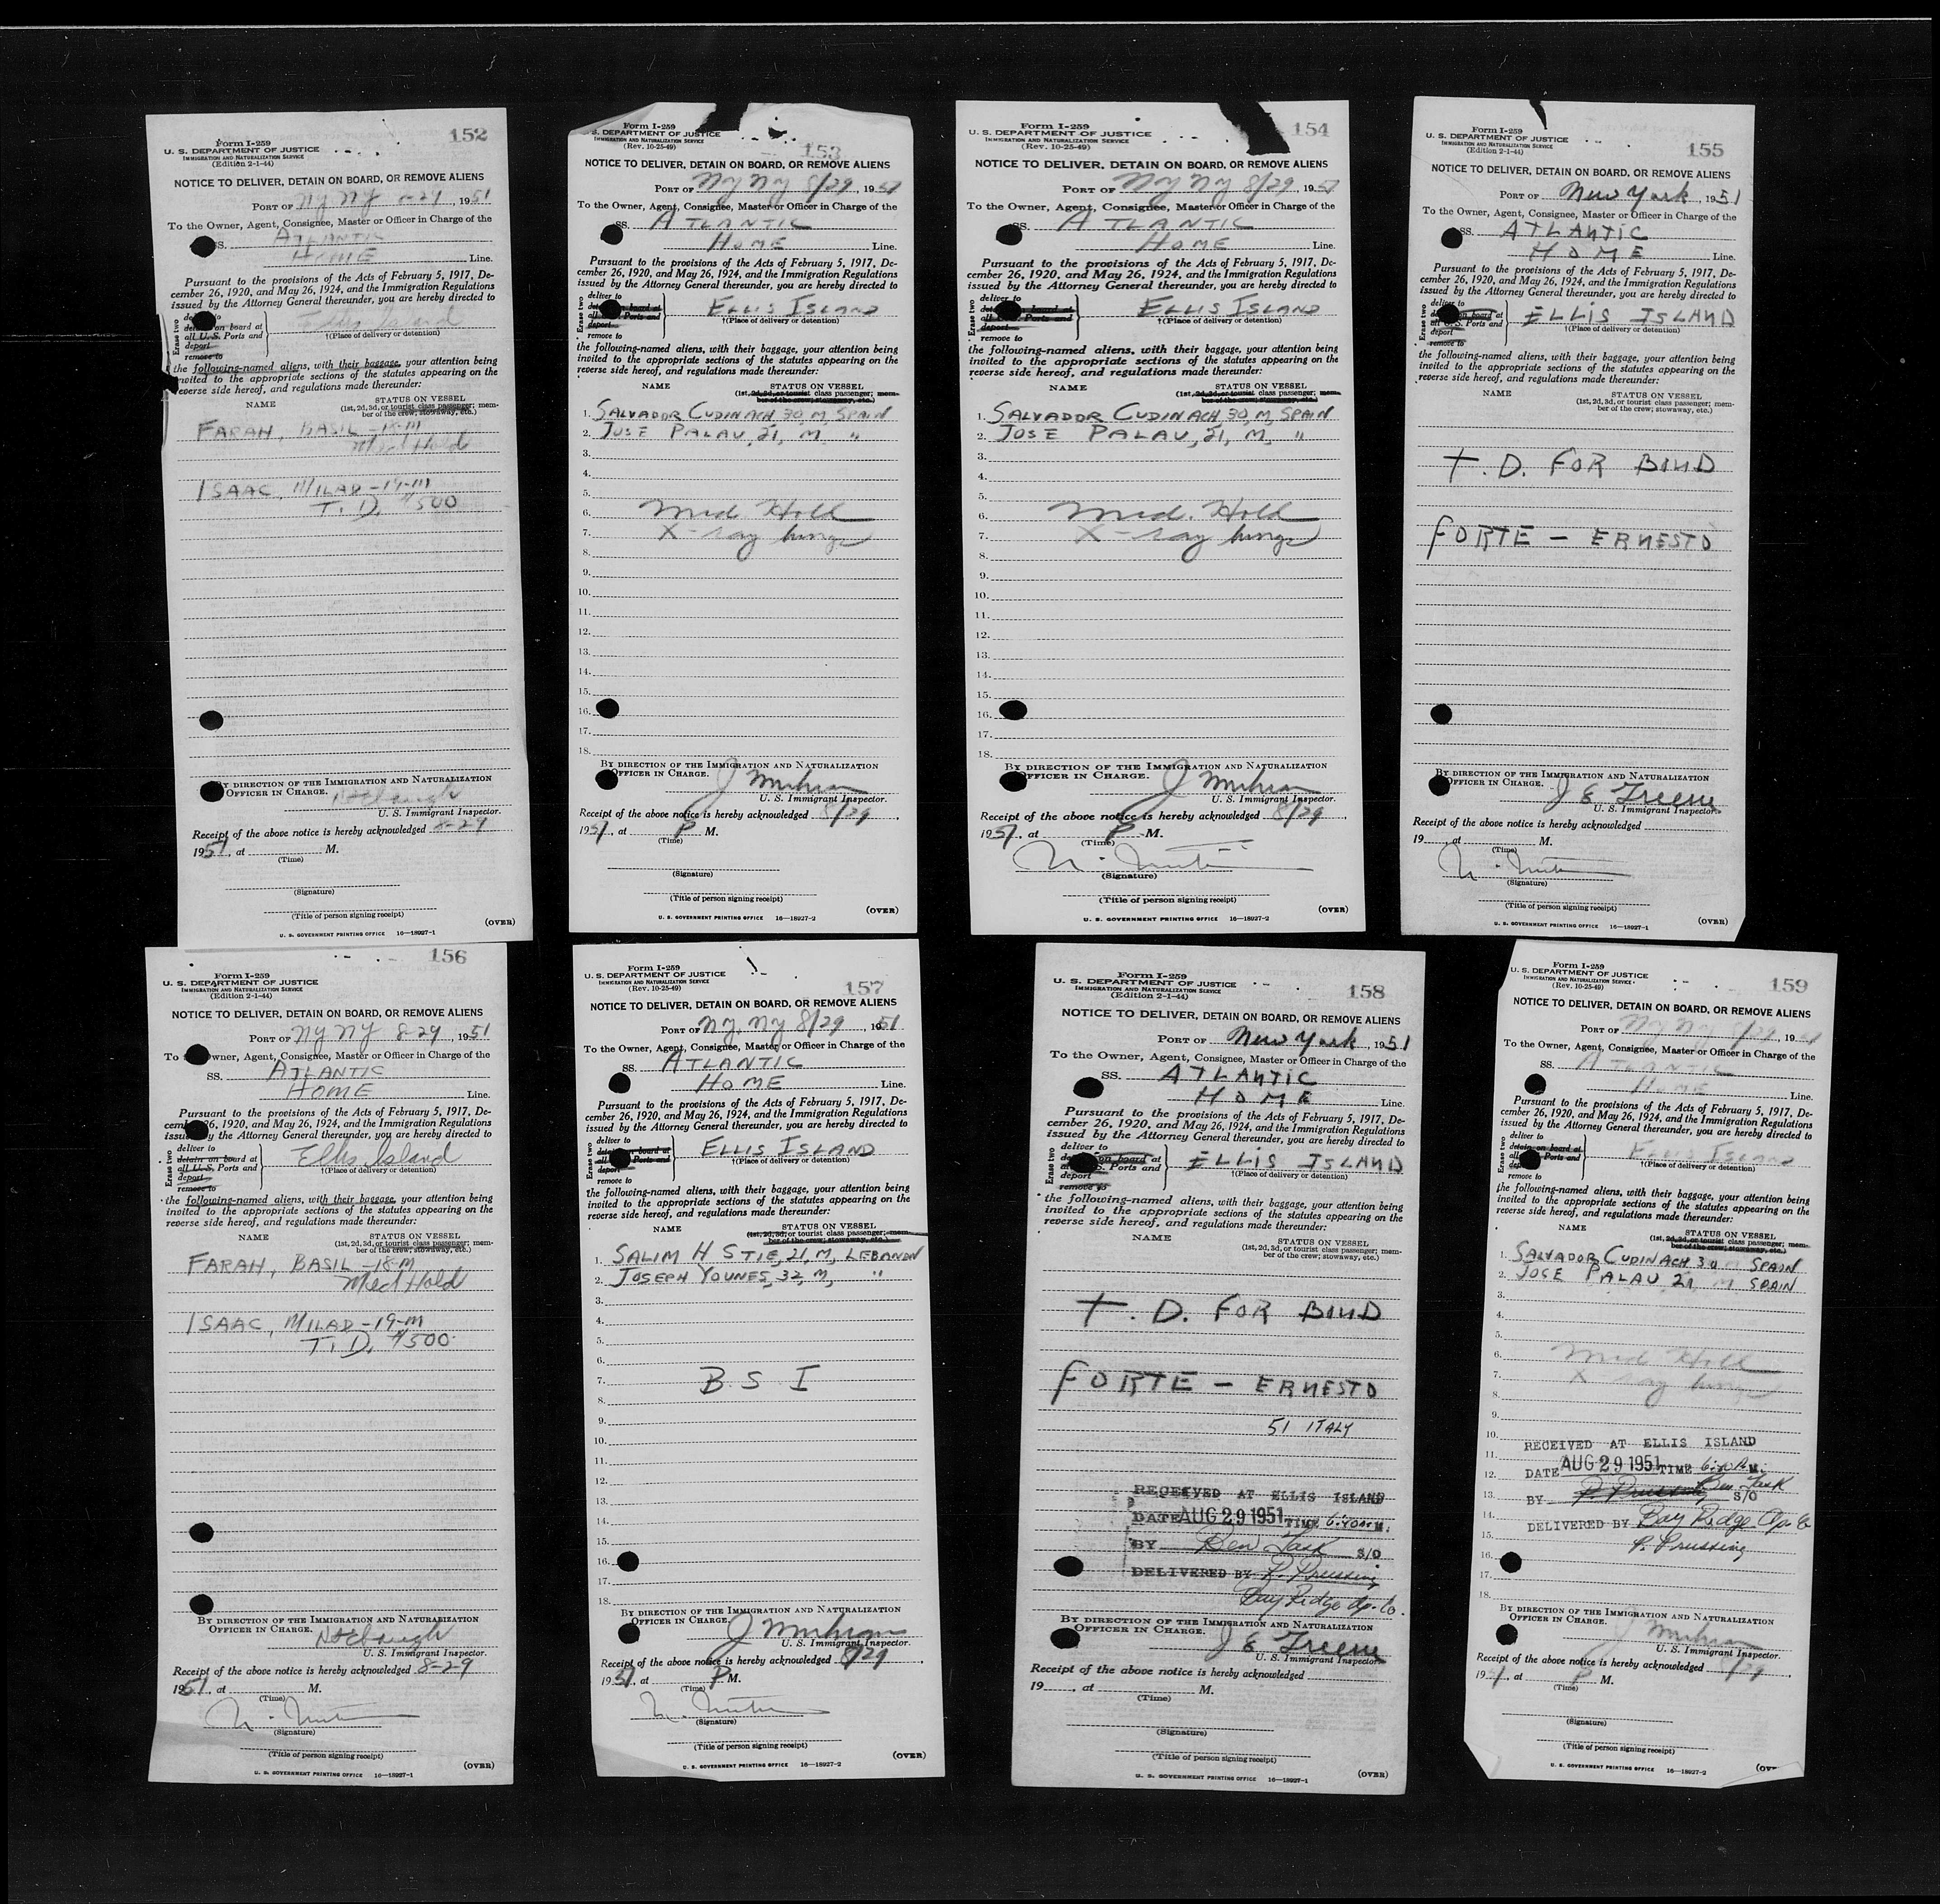 152
Form I-259
U. S. DEPARTMENT OF JUSTICE
IMMIGRATION AND NATURALIZATION SERVICE
(Edition 2-1-44)
NOTICE TO DELIVER, DETAIN ON BOARD, OR REMOVE ALIENS
PORT OF NY NY 8-29, 1951
To the Owner, Agent, Consignee, Master or Officer in Charge of the
SS. ATLANTIC
HOME Line.
Pursuant to the provisions of the Acts of February 5, 1917, De-
cember 26, 1920, and May 26, 1924, and the Immigration Regulations
issued by the Attorney General thereunder, you are hereby directed to
Erase two
to
on board at
all U.S. Ports and
deport
remove to
Ellis Island
†(Place of delivery or detention)
the following-named aliens, with their baggage, your attention being
invited to the appropriate sections of the statutes appearing on the
reverse side hereof, and regulations made thereunder:
NAME STATUS ON VESSEL
(1st, 2d, 3d, or tourist class passenger; mem-
ber of the crew; stowaway, etc.)
FARAH, BASIL - 18-M
Med Hold
ISAAC, MILAD - 19-M
T. D. $500
BY DIRECTION OF THE IMMIGRATION AND NATURALIZATION
OFFICER IN CHARGE.
U. S. Immigrant Inspector.
Receipt of the above notice is hereby acknowledged 8-29
1951, at M.
(Time)
(Signature)
(Title of person signing receipt)
(OVER)
U. S. GOVERNMENT PRINTING OFFICE 16—18927-1
153
Form I-259
U. S. DEPARTMENT OF JUSTICE
IMMIGRATION AND NATURALIZATION SERVICE
(Rev. 10-25-49)
NOTICE TO DELIVER, DETAIN ON BOARD, OR REMOVE ALIENS
PORT OF NY NY 8/29, 1951
To the Owner, Agent, Consignee, Master or Officer in Charge of the
SS. ATLANTIC
HOME Line.
Pursuant to the provisions of the Acts of February 5, 1917, De-
cember 26, 1920, and May 26, 1924, and the Immigration Regulations
issued by the Attorney General thereunder, you are hereby directed to
Erase two
deliver to
on board at
all Ports and
deport
remove to
ELLIS ISLAND
†(Place of delivery or detention)
the following-named aliens, with their baggage, your attention being
invited to the appropriate sections of the statutes appearing on the
reverse side hereof, and regulations made thereunder:
NAME STATUS ON VESSEL
(1st, 2d, 3d, or tourist class passenger; mem-
ber of the crew; stowaway, etc.)
1. SALVADOR CUDINACH, 30, M, SPAIN
2. JOSE PALAU, 21, M, "
3.
4.
5.
6. Med. Hold
7. X-ray lungs
8.
9.
10.
11.
12.
13.
14.
15.
16.
17.
18.
BY DIRECTION OF THE IMMIGRATION AND NATURALIZATION
OFFICER IN CHARGE.
U. S. Immigrant Inspector.
Receipt of the above notice is hereby acknowledged 8/29,
1951, at P M.
(Time)
(Signature)
(Title of person signing receipt)
(OVER)
U. S. GOVERNMENT PRINTING OFFICE 16—18927-2
154
Form I-259
U. S. DEPARTMENT OF JUSTICE
IMMIGRATION AND NATURALIZATION SERVICE
(Rev. 10-25-49)
NOTICE TO DELIVER, DETAIN ON BOARD, OR REMOVE ALIENS
PORT OF NY NY 8/29, 1951
To the Owner, Agent, Consignee, Master or Officer in Charge of the
SS. ATLANTIC
HOME Line.
Pursuant to the provisions of the Acts of February 5, 1917, De-
cember 26, 1920, and May 26, 1924, and the Immigration Regulations
issued by the Attorney General thereunder, you are hereby directed to
Erase two
deliver to
on board at
all Ports and
deport
remove to
ELLIS ISLAND
†(Place of delivery or detention)
the following-named aliens, with their baggage, your attention being
invited to the appropriate sections of the statutes appearing on the
reverse side hereof, and regulations made thereunder:
NAME STATUS ON VESSEL
(1st, 2d, 3d, or tourist class passenger; mem-
ber of the crew; stowaway, etc.)
1. SALVADOR CUDINACH, 30, M, SPAIN
2. JOSE PALAU, 21, M, "
3.
4.
5.
6. Med. Hold
7. X-ray lungs
8.
9.
10.
11.
12.
13.
14.
15.
16.
17.
18.
BY DIRECTION OF THE IMMIGRATION AND NATURALIZATION
OFFICER IN CHARGE.
U. S. Immigrant Inspector.
Receipt of the above notice is hereby acknowledged 8/29,
1951, at P M.
(Time)
(Signature)
(Title of person signing receipt)
(OVER)
U. S. GOVERNMENT PRINTING OFFICE 16—18927-2
155
Form I-259
U. S. DEPARTMENT OF JUSTICE
IMMIGRATION AND NATURALIZATION SERVICE
(Edition 2-1-44)
NOTICE TO DELIVER, DETAIN ON BOARD, OR REMOVE ALIENS
PORT OF New York, 1951
To the Owner, Agent, Consignee, Master or Officer in Charge of the
SS. ATLANTIC
HOME Line.
Pursuant to the provisions of the Acts of February 5, 1917, De-
cember 26, 1920, and May 26, 1924, and the Immigration Regulations
issued by the Attorney General thereunder, you are hereby directed to
Erase two
deliver to
on board at
all U.S. Ports and
deport
remove to
ELLIS ISLAND
†(Place of delivery or detention)
the following-named aliens, with their baggage, your attention being
invited to the appropriate sections of the statutes appearing on the
reverse side hereof, and regulations made thereunder:
NAME STATUS ON VESSEL
(1st, 2d, 3d, or tourist class passenger; mem-
ber of the crew; stowaway, etc.)
T. D. FOR BOND
FORTE - ERNESTO
BY DIRECTION OF THE IMMIGRATION AND NATURALIZATION
OFFICER IN CHARGE.
J E Greene
U. S. Immigrant Inspector.
Receipt of the above notice is hereby acknowledged
19 , at M.
(Time)
(Signature)
(Title of person signing receipt)
(OVER)
U. S. GOVERNMENT PRINTING OFFICE 16—18927-1
156
Form I-259
U. S. DEPARTMENT OF JUSTICE
IMMIGRATION AND NATURALIZATION SERVICE
(Edition 2-1-44)
NOTICE TO DELIVER, DETAIN ON BOARD, OR REMOVE ALIENS
PORT OF NY NY 8-29, 1951
To Owner, Agent, Consignee, Master or Officer in Charge of the
SS. ATLANTIC
HOME Line.
Pursuant to the provisions of the Acts of February 5, 1917, De-
cember 26, 1920, and May 26, 1924, and the Immigration Regulations
issued by the Attorney General thereunder, you are hereby directed to
Erase two
deliver to
detain on board at
all U.S. Ports and
deport
remove to
Ellis Island
†(Place of delivery or detention)
the following-named aliens, with their baggage, your attention being
invited to the appropriate sections of the statutes appearing on the
reverse side hereof, and regulations made thereunder:
NAME STATUS ON VESSEL
(1st, 2d, 3d, or tourist class passenger; mem-
ber of the crew; stowaway, etc.)
FARAH, BASIL - 18-M
Med Hold
ISAAC, MILAD - 19-M
T. D. $500
BY DIRECTION OF THE IMMIGRATION AND NATURALIZATION
OFFICER IN CHARGE.
U. S. Immigrant Inspector.
Receipt of the above notice is hereby acknowledged 8-29
1951, at M.
(Time)
(Signature)
(Title of person signing receipt)
(OVER)
U. S. GOVERNMENT PRINTING OFFICE 16—18927-1
157
Form I-259
U. S. DEPARTMENT OF JUSTICE
IMMIGRATION AND NATURALIZATION SERVICE
(Rev. 10-25-49)
NOTICE TO DELIVER, DETAIN ON BOARD, OR REMOVE ALIENS
PORT OF NY, NY 8/29, 1951
To the Owner, Agent, Consignee, Master or Officer in Charge of the
SS. ATLANTIC
HOME Line.
Pursuant to the provisions of the Acts of February 5, 1917, De-
cember 26, 1920, and May 26, 1924, and the Immigration Regulations
issued by the Attorney General thereunder, you are hereby directed to
Erase two
deliver to
detain on board at
all Ports and
deport
remove to
ELLIS ISLAND
†(Place of delivery or detention)
the following-named aliens, with their baggage, your attention being
invited to the appropriate sections of the statutes appearing on the
reverse side hereof, and regulations made thereunder:
NAME STATUS ON VESSEL
(1st, 2d, 3d, or tourist class passenger; mem-
ber of the crew; stowaway, etc.)
1. SALIM H STIE, 21, M, LEBANON
2. JOSEPH YOUNES, 32, M, "
3.
4.
5.
6.
7. B. S. I
8.
9.
10.
11.
12.
13.
14.
15.
16.
17.
18.
BY DIRECTION OF THE IMMIGRATION AND NATURALIZATION
OFFICER IN CHARGE.
U. S. Immigrant Inspector.
Receipt of the above notice is hereby acknowledged 8/29,
1951, at P M.
(Time)
(Signature)
(Title of person signing receipt)
(OVER)
U. S. GOVERNMENT PRINTING OFFICE 16—18927-2
158
Form I-259
U. S. DEPARTMENT OF JUSTICE
IMMIGRATION AND NATURALIZATION SERVICE
(Edition 2-1-44)
NOTICE TO DELIVER, DETAIN ON BOARD, OR REMOVE ALIENS
PORT OF New York, 1951
To the Owner, Agent, Consignee, Master or Officer in Charge of the
SS. ATLANTIC
HOME Line.
Pursuant to the provisions of the Acts of February 5, 1917, De-
cember 26, 1920, and May 26, 1924, and the Immigration Regulations
issued by the Attorney General thereunder, you are hereby directed to
Erase two
deliver to
on board at
Ports and
deport
remove to
ELLIS ISLAND
†(Place of delivery or detention)
the following-named aliens, with their baggage, your attention being
invited to the appropriate sections of the statutes appearing on the
reverse side hereof, and regulations made thereunder:
NAME STATUS ON VESSEL
(1st, 2d, 3d, or tourist class passenger; mem-
ber of the crew; stowaway, etc.)
T. D. FOR BOND
FORTE - ERNESTO
51 ITALY
RECEIVED AT ELLIS ISLAND
DATE AUG 29 1951 TIME 6:40 P.M.
BY Ben Task S/O
DELIVERED BY P. Prussing
Bay Ridge Op. Co.
BY DIRECTION OF THE IMMIGRATION AND NATURALIZATION
OFFICER IN CHARGE.
J E Greene
U. S. Immigrant Inspector.
Receipt of the above notice is hereby acknowledged
19 , at M.
(Time)
(Signature)
(Title of person signing receipt)
(OVER)
U. S. GOVERNMENT PRINTING OFFICE 16—18927-1
159
Form I-259
U. S. DEPARTMENT OF JUSTICE
IMMIGRATION AND NATURALIZATION SERVICE
(Rev. 10-25-49)
NOTICE TO DELIVER, DETAIN ON BOARD, OR REMOVE ALIENS
PORT OF NY NY 8/29, 1951
To the Owner, Agent, Consignee, Master or Officer in Charge of the
SS. ATLANTIC
HOME Line.
Pursuant to the provisions of the Acts of February 5, 1917, De-
cember 26, 1920, and May 26, 1924, and the Immigration Regulations
issued by the Attorney General thereunder, you are hereby directed to
Erase two
deliver to
detain on board at
all Ports and
deport
remove to
ELLIS ISLAND
†(Place of delivery or detention)
the following-named aliens, with their baggage, your attention being
invited to the appropriate sections of the statutes appearing on the
reverse side hereof, and regulations made thereunder:
NAME STATUS ON VESSEL
(1st, 2d, 3d, or tourist class passenger; mem-
ber of the crew; stowaway, etc.)
1. SALVADOR CUDINACH 30 M SPAIN
2. JOSE PALAU 21 M SPAIN
3.
4.
5.
6. Med Hold
7. X-ray lungs
8.
9.
10.
RECEIVED AT ELLIS ISLAND
11.
12. DATE AUG 29 1951 TIME 6:40 P.M.
Ben Task
13. BY P. Prussing S/O
14.
DELIVERED BY Bay Ridge Op. Co
15. P. Prussing
16.
17.
18.
BY DIRECTION OF THE IMMIGRATION AND NATURALIZATION
OFFICER IN CHARGE.
U. S. Immigrant Inspector.
Receipt of the above notice is hereby acknowledged 8/29
1951, at P M.
(Time)
(Signature)
(Title of person signing receipt)
U. S. GOVERNMENT PRINTING OFFICE 16—18927-2